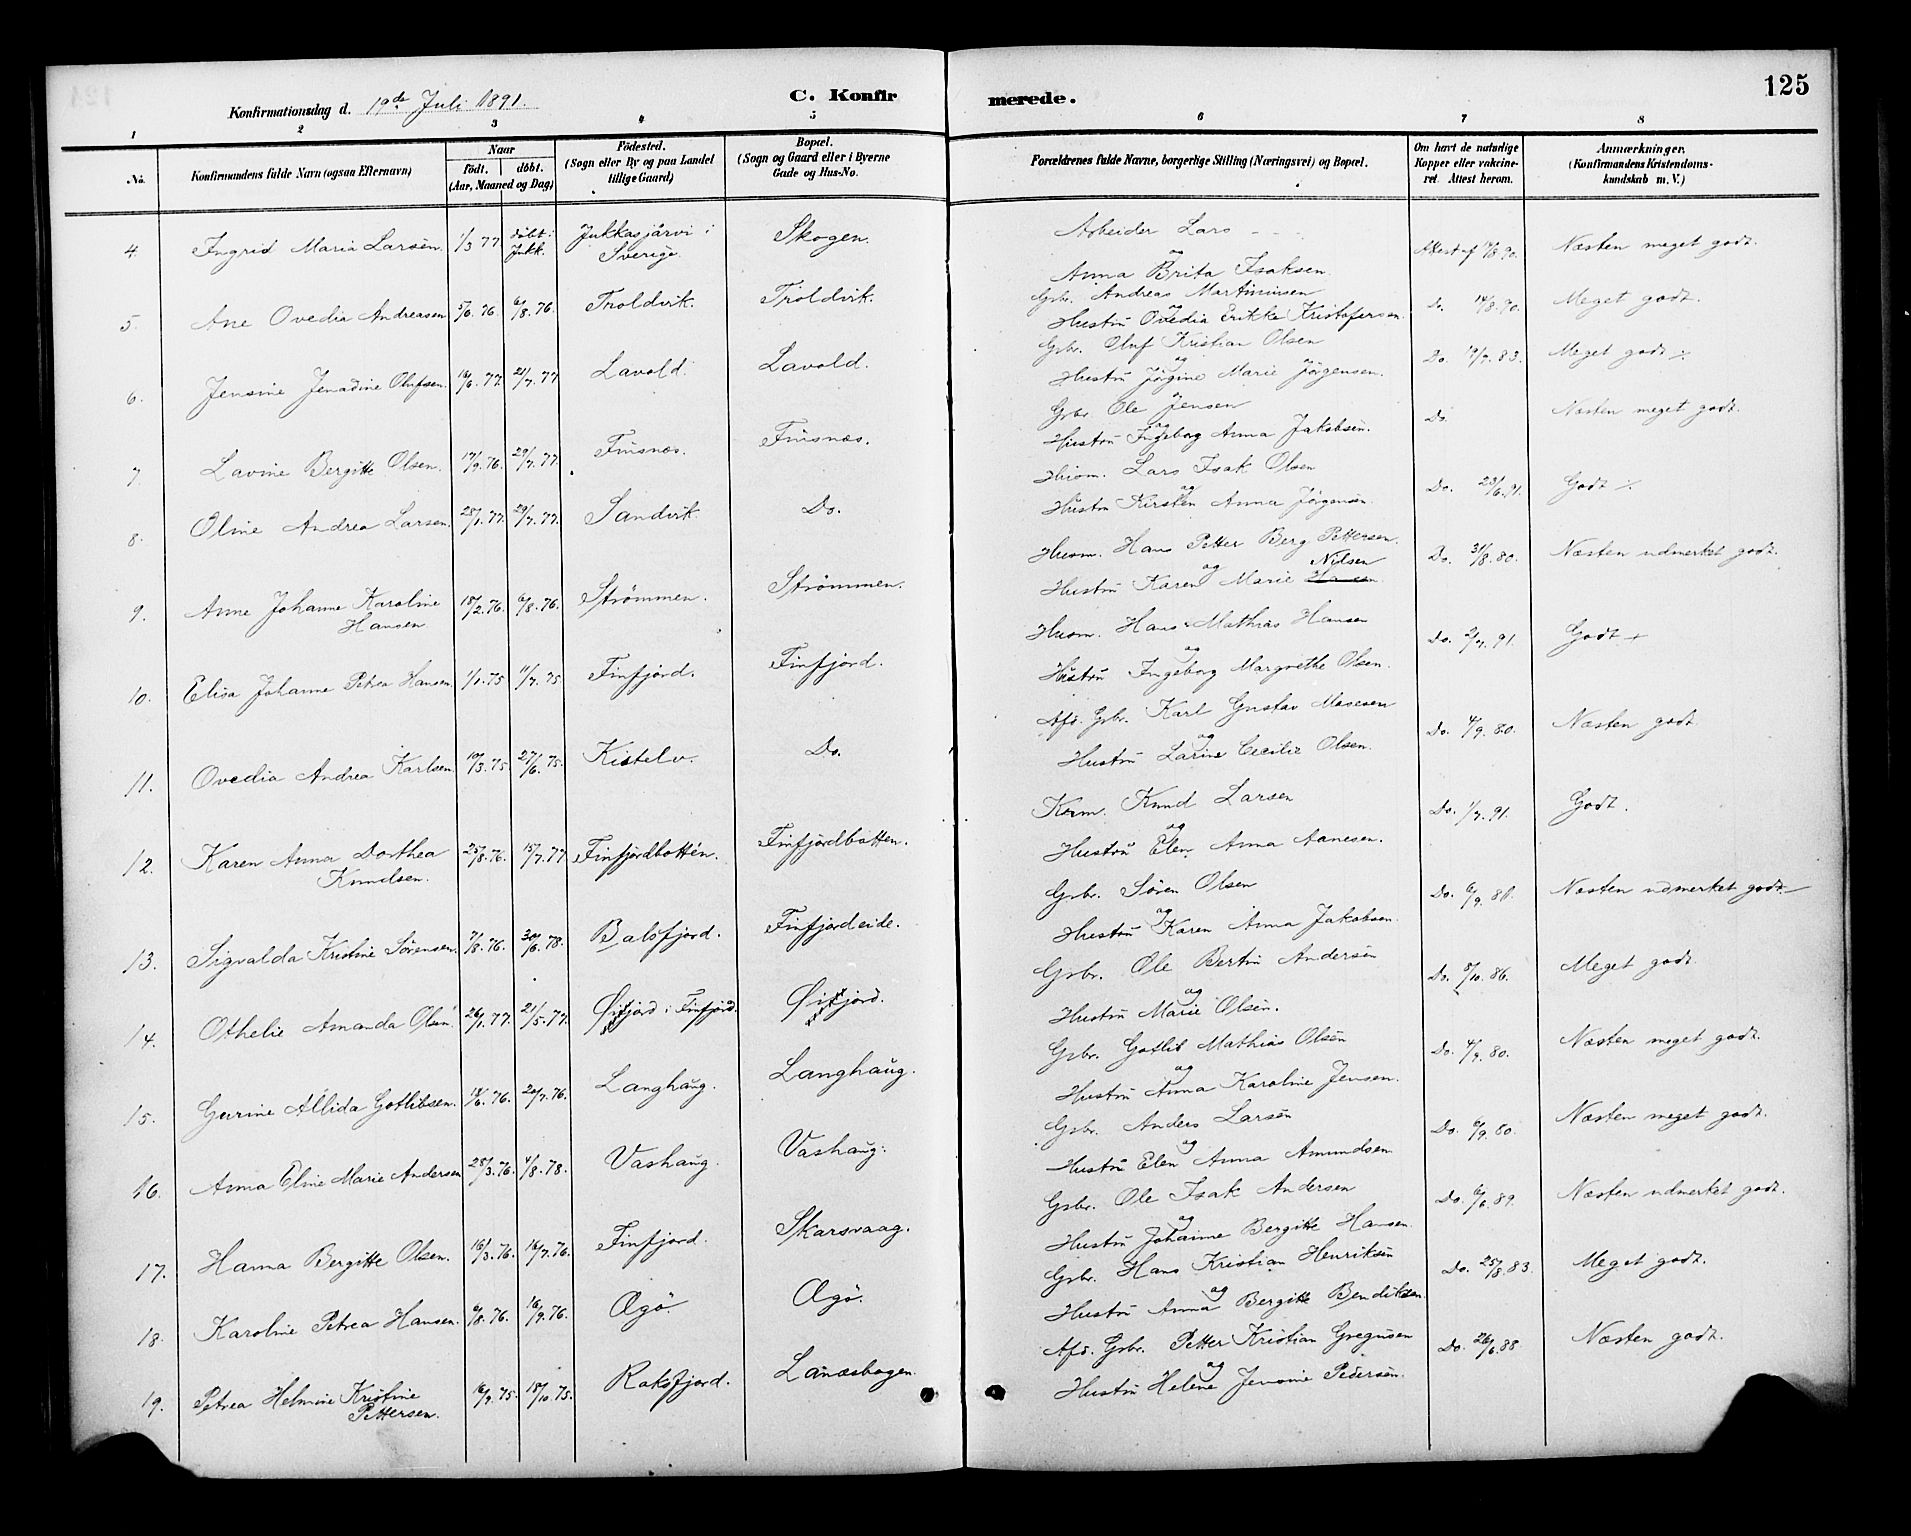 125
Konfirmationsdag d. 19de Juli 1891.
C. Konfirmerede.
1 2 3 4 5 6 7 8
No. Konfirmandens fulde Navn (ogsaa Efternavn) Naar Født. døbt. (Aar, Maaned og Dag) Fødested. (Sogn eller By og paa Landet tillige Gaard) Bopæl. (Sogn og Gaard eller i Byerne Gade og Hus-No. Forældrenes fulde Navne, borgerlige Stilling (Næringsvei) og Bopæl. Om havt de naturlige Kopper eller vakcineret. Attest herom. Anmærkninger. (Konfirmandens Kristendomskundskab m. V.)
4. Ingrid Maria Larsen. 1/3 77 døbt i Jukk. Jukkasjärvi i Sverige. Skogen. Arbeider Lars - - -
og Anna Brita Isaksen. Attest af /8.90. Næsten meget godt.
5. Ane Ovedia Andreasen 5/6.76. 6/8.76. Troldvik. Troldvik. Gbr. Andreas Martinusen
Hustru Ovedia Erikke Kristofersen. Do. 14/8.90. Meget godt.
6. Jensine Jenadine Olufsen. 16/6.77. 21/7.77 Lavold. Lavold. Gbr. Oluf Kristian Olsen
og Hustru Jørgine Marie Jørgensen. Do. 19/7.83. Meget godt
7. Lavine Bergitte Olsen. 17/9.76. 29/7.77. Finsnæs. Finsnæs. Gbr. Ole Jensen
og Hustru Ingeborg Anna Jakobsen. Do. Næsten meget godt.
8. Oline Andrea Larsen. 28/1.77. 29/7.77. Sandvik. Do. Husm. Lars Isak Olsen
og Hustru Kirsten Anna Jørgensen. Do. 23/6.91. Godt
9. Anne Johanne Karoline Hansen 18/2.76. 6/8.76. Strømmen. Strømmen. Husm. Hans Petter Berg Pettersen.
og Hustru Karen Marie Nilsen Do. 31/8.80. Næsten udmerket godt.
10. Elisa Johanne Petrea Hansen. 1/1.75 11/7.75 Finfjord. Finfjord. Husm. Hans Mathias Hansen
og Hustru Ingeborg Margrethe Olsen. Do. 2/7.91. Godt +
11. Ovedia Andrea Karlsen. 19/3.75. 27/6.75. Kistelv. Do. Afd. Gbr. Karl Gustav Mosesen
og Hustru Larine Cecilie Olsen. Do. 4/9.80. Næsten godt
12. Karen Anna Dorthea Knudsen. 25/8.76. 15/7.77 Finfjordbotten. Finfjordbotten. Knud Larsen
og Hustru Elen Anna Aanesen. Do. 1/7.91. Godt.
13. Sigvalda Kristine Sørensen. 7/8.76. 30/6.78. Balsfjord. Finfjordeide. Gbr. Søren Olsen
og Hustru Karen Anna Jakobsen. Do. 6/9.80. Næsten udmerket godt
14. Othelie Amanda Olsen 26/1.77. 21/5.77. Øifjord i Finfjord. Øifjord. Gbr. Ole Bertin Andersen
og Hustru Marie Olsen. Do. 8/10.86. Meget godt.
15. Gurine Allida Gotlibsen. 18/6.76. 20/7.76. Langhaug. Langhaug. Gbr. Gotlib Mathias Olsen
og Hustru Anna Karoline Jensen. Do. 4/9.80. Næsten meget godt.
16. Anna Eline Marie Andersen 28/3.76. 4/8.78. Vashaug. Vashaug. Gbr. Anders Larsen
og Hustru Elen Anna Amundsen. Do. 6/9.80. Næsten meget godt.
17. Hanna Bergitte Olsen. 16/3.76. 16/7.76. Finfjord. Skarsvaag. Gbr. Ole Isak Andersen
og Hustru Johanne Bergitte Hansen. Do. 6/6.89. Næsten udmerket godt.
18. Karoline Petrea Hansen. 9/8.76. 16/9.76. Øgø. Øgø. Gbr. Hans Kristian Henriksen
og Hustru Anna Bergitte Bendiksen. Do. 25/8.83. Meget godt.
19. Petrea Helmine Kristine Pettersen. 16/9.75 18/10.75. Roksfjord. Lanæsbogen. Afd. Gbr. Petter Kristian Gregusen
og Hustru Helene Jensine Pedersen. Do. 26/6.88 Næsten godt.